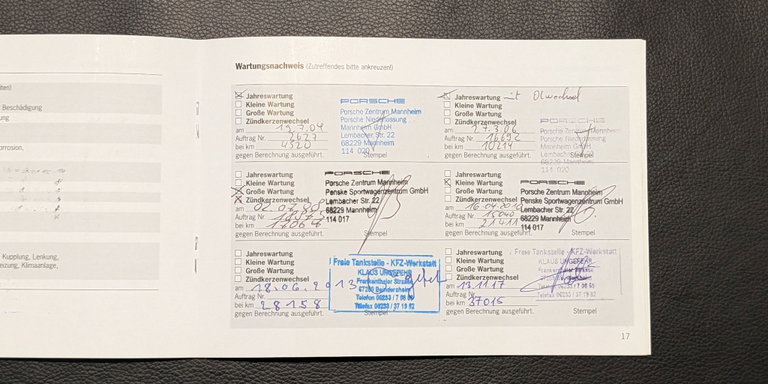 Beschädigung
Kupplung, Lenkung,
Klimaanlage,
Wartungsnachweis (Zutreffendes bitte ankreuzen!)
Jahreswartung
Kleine Wartung
Große Wartung
Zündkerzenwechsel
am 19.7.04
Auftrag Nr. 2627
bei km 4520
gegen Berechnung ausgeführt.
PORSCHE
Porsche Zentrum Mannheim
Porsche Niederlassung
Mannheim GmbH
Lembacher Str. 22
68229 Mannheim
114 020
Stempel
Jahreswartung mit Ölwechsel
Kleine Wartung
Große Wartung
Zündkerzenwechsel
am 27.3.06
Auftrag Nr. 16692
bei km 10214
gegen Berechnung ausgeführt.
PORSCHE
Porsche Zentrum Mannheim
Porsche Niederlassung
Mannheim GmbH
Lembacher Str. 22
68229 Mannheim
114 020
Stempel
Jahreswartung
Kleine Wartung
Große Wartung
Zündkerzenwechsel
am
Auftrag Nr.
bei km
gegen Berechnung ausgeführt.
PORSCHE
Porsche Zentrum Mannheim
Penske Sportwagenzentrum GmbH
Lembacher Str. 22
68229 Mannheim
114 017
Jahreswartung
Kleine Wartung
Große Wartung
Zündkerzenwechsel
am
Auftrag Nr. 15040
bei km 21411
gegen Berechnung ausgeführt.
PORSCHE
Porsche Zentrum Mannheim
Penske Sportwagenzentrum GmbH
Lembacher Str. 22
68229 Mannheim
114 017
Stempel
Jahreswartung
Kleine Wartung
Große Wartung
Zündkerzenwechsel
am 18.06.2013
Auftrag Nr.
bei km 28158
gegen Berechnung ausgeführt.
Freie Tankstelle - KFZ-Werkstatt
KLAUS
Frankenthaler Straße
Telefon 06233 /
Telefax 06233 / 37 19 82
Stempel
Jahreswartung
Kleine Wartung
Große Wartung
Zündkerzenwechsel
am 13.11.17
Auftrag Nr.
bei km 37015
gegen Berechnung ausgeführt.
Freie Tankstelle - KFZ-Werkstatt
KLAUS
Stempel
17